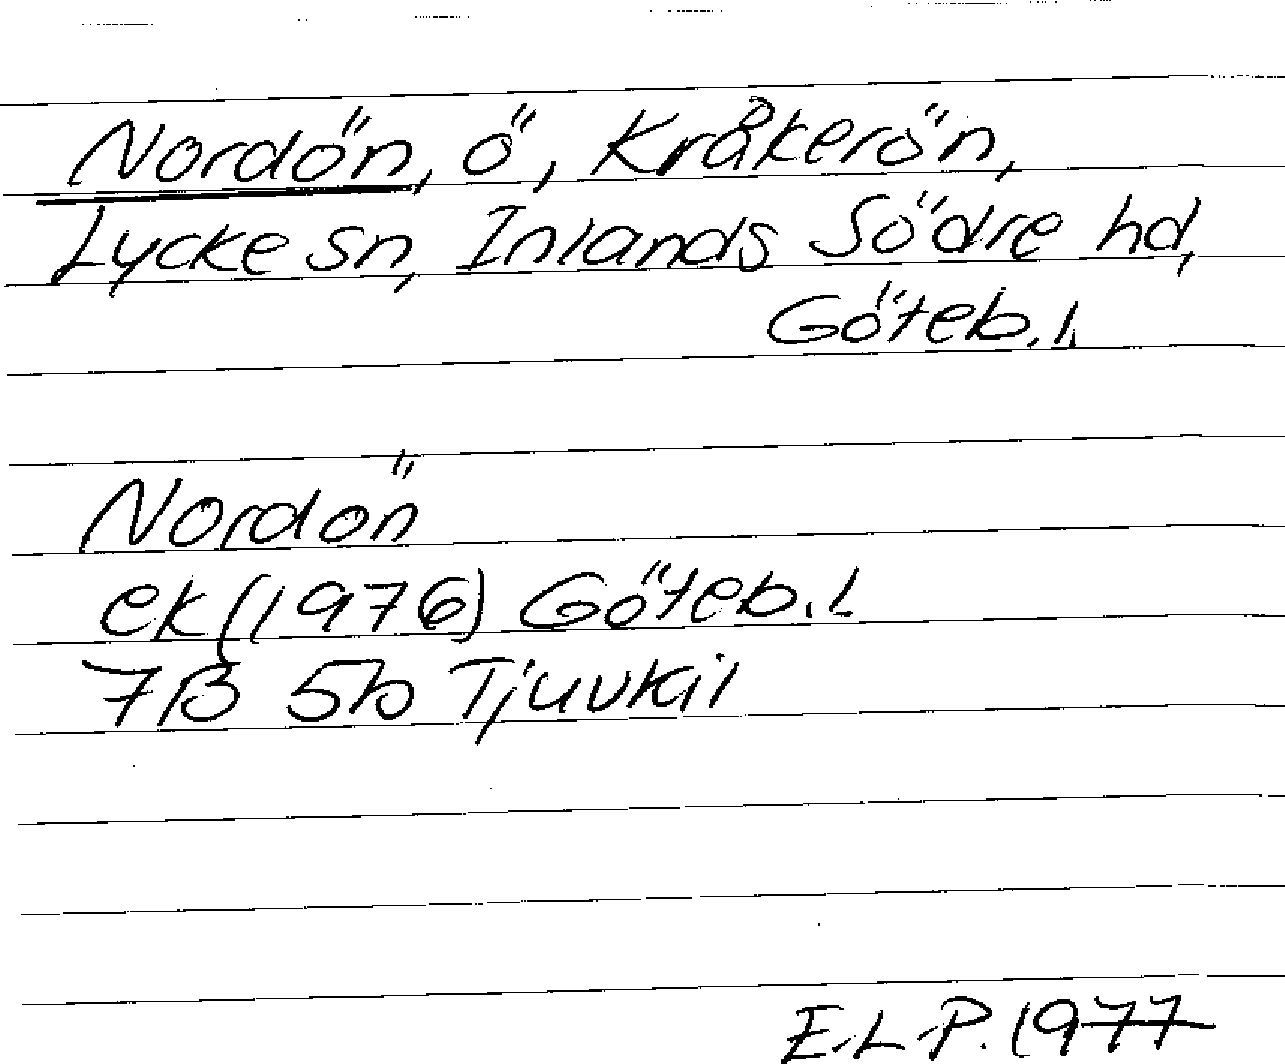 Nordön, ö, Kråkerön,
Lycke sn, Inlands Södre hd,
Göteb. l.
Nordön
ek (1976) Göteb. l
7B 5b Tjuvkil
E.L.P. 1977